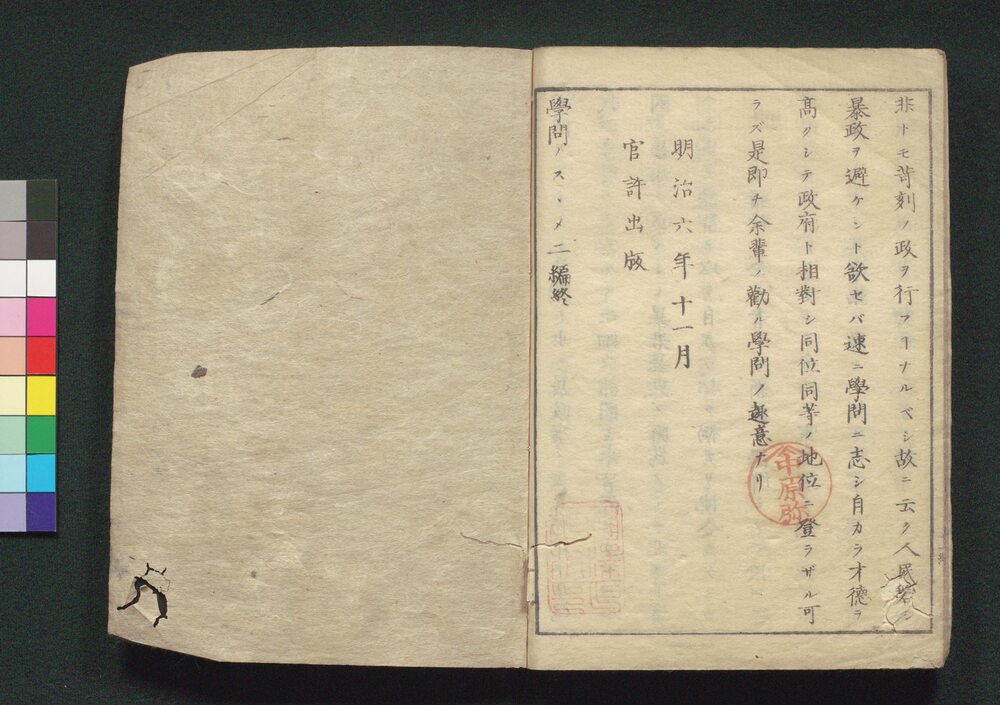 非トモ苛刻ノ政ヲ行フヿナルベシ故ニ云ク人民
暴政ヲ避ケント欲セバ速ニ學問ニ志シ自カラ才德ヲ
髙クシテ政府ト相對シ同位同等ノ地位ニ登ラザル可
ラズ是即チ余輩ノ勸ル學問ノ趣意ナリ
明治六年十一月
官許出版
學問ノスヽメ二編終
中原弥